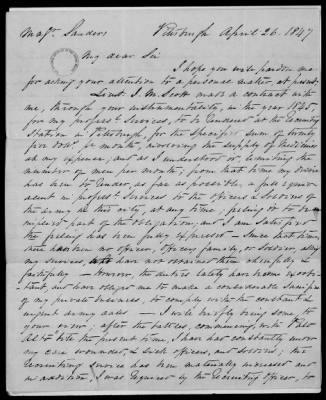 Majr. Sanders Pittsburgh April 26. 1847
My dear Sir
I hope you will pardon me
for asking your attention to a personal matter, at present.
Lieut. J. M. Scott made a contract with
me, through your instrumentality, in the year 1845,
for my profesl. services, to be rendered at the Recruiting
Station in Pittsburgh, for the specified sum of twenty
five dolls. pr month, involving the supply of Medicines
at my expense; and as I understood it, limiting the
number of men per month; from that time my desire
has been to render, as far as possible, a full equiv-
alent in profesl. services to the officers & soldiers of
the army in this city, at any time; feeling it to be an
implied part of the obligation, and I am satisfied
the feeling has been fully expressed — Since that time,
there has been no officer, officers family, or soldier, asking
my services, who have not received them cheerfully &
faithfully — However, the duties lately have been import-
tant, and have obliged me to make a considerable sacrifice
of my private business, to comply with the constant &
urgent army calls — I will briefly bring some to
your view; after the battles, commencing with Palo
Alto to the present time, I have had constantly under
my care wounded, & sick officers, and soldiers; the
Recruiting service has been materially increased and
in addition, I was required by the Recruiting officer, to